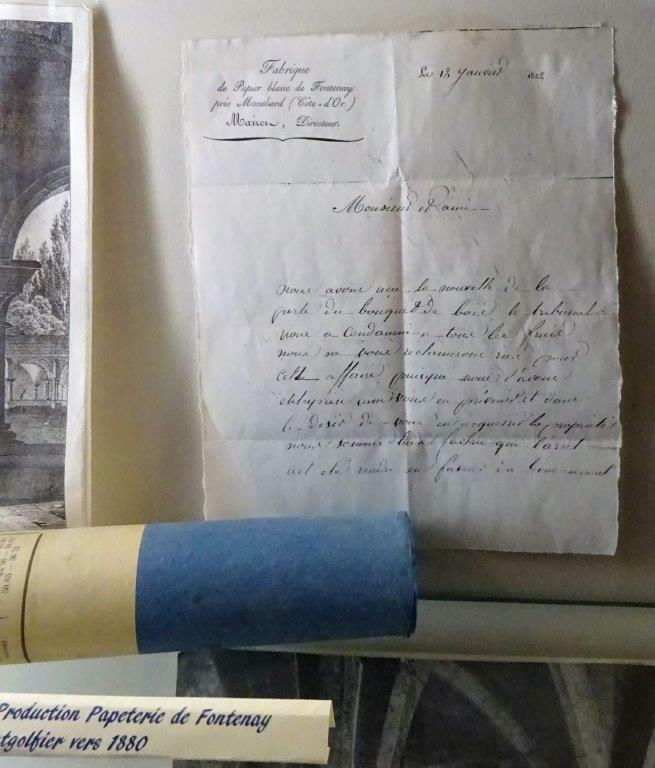 Fabrique
de Papier blanc de Fontenay
près Montbard (Côte-d'Or.)
Mairet, Directeur.
Le 18 Janvier 182
Monsieur et ami
nous avons reçu la nouvelle de la
perte du bouquet de bois le tribunal
nous a condamné a tous les frais
nous ne vous reclamerons rien pour
cette affaire puisque nous l'avons
entreprise sans vous en prévenir et dans
le desir de vous en acquerir la propriété
nous sommes bien faché que l'arret
ait été rendu en faveur du Gouvernement
Production Papeterie de Fontenay
tgolfier vers 1880